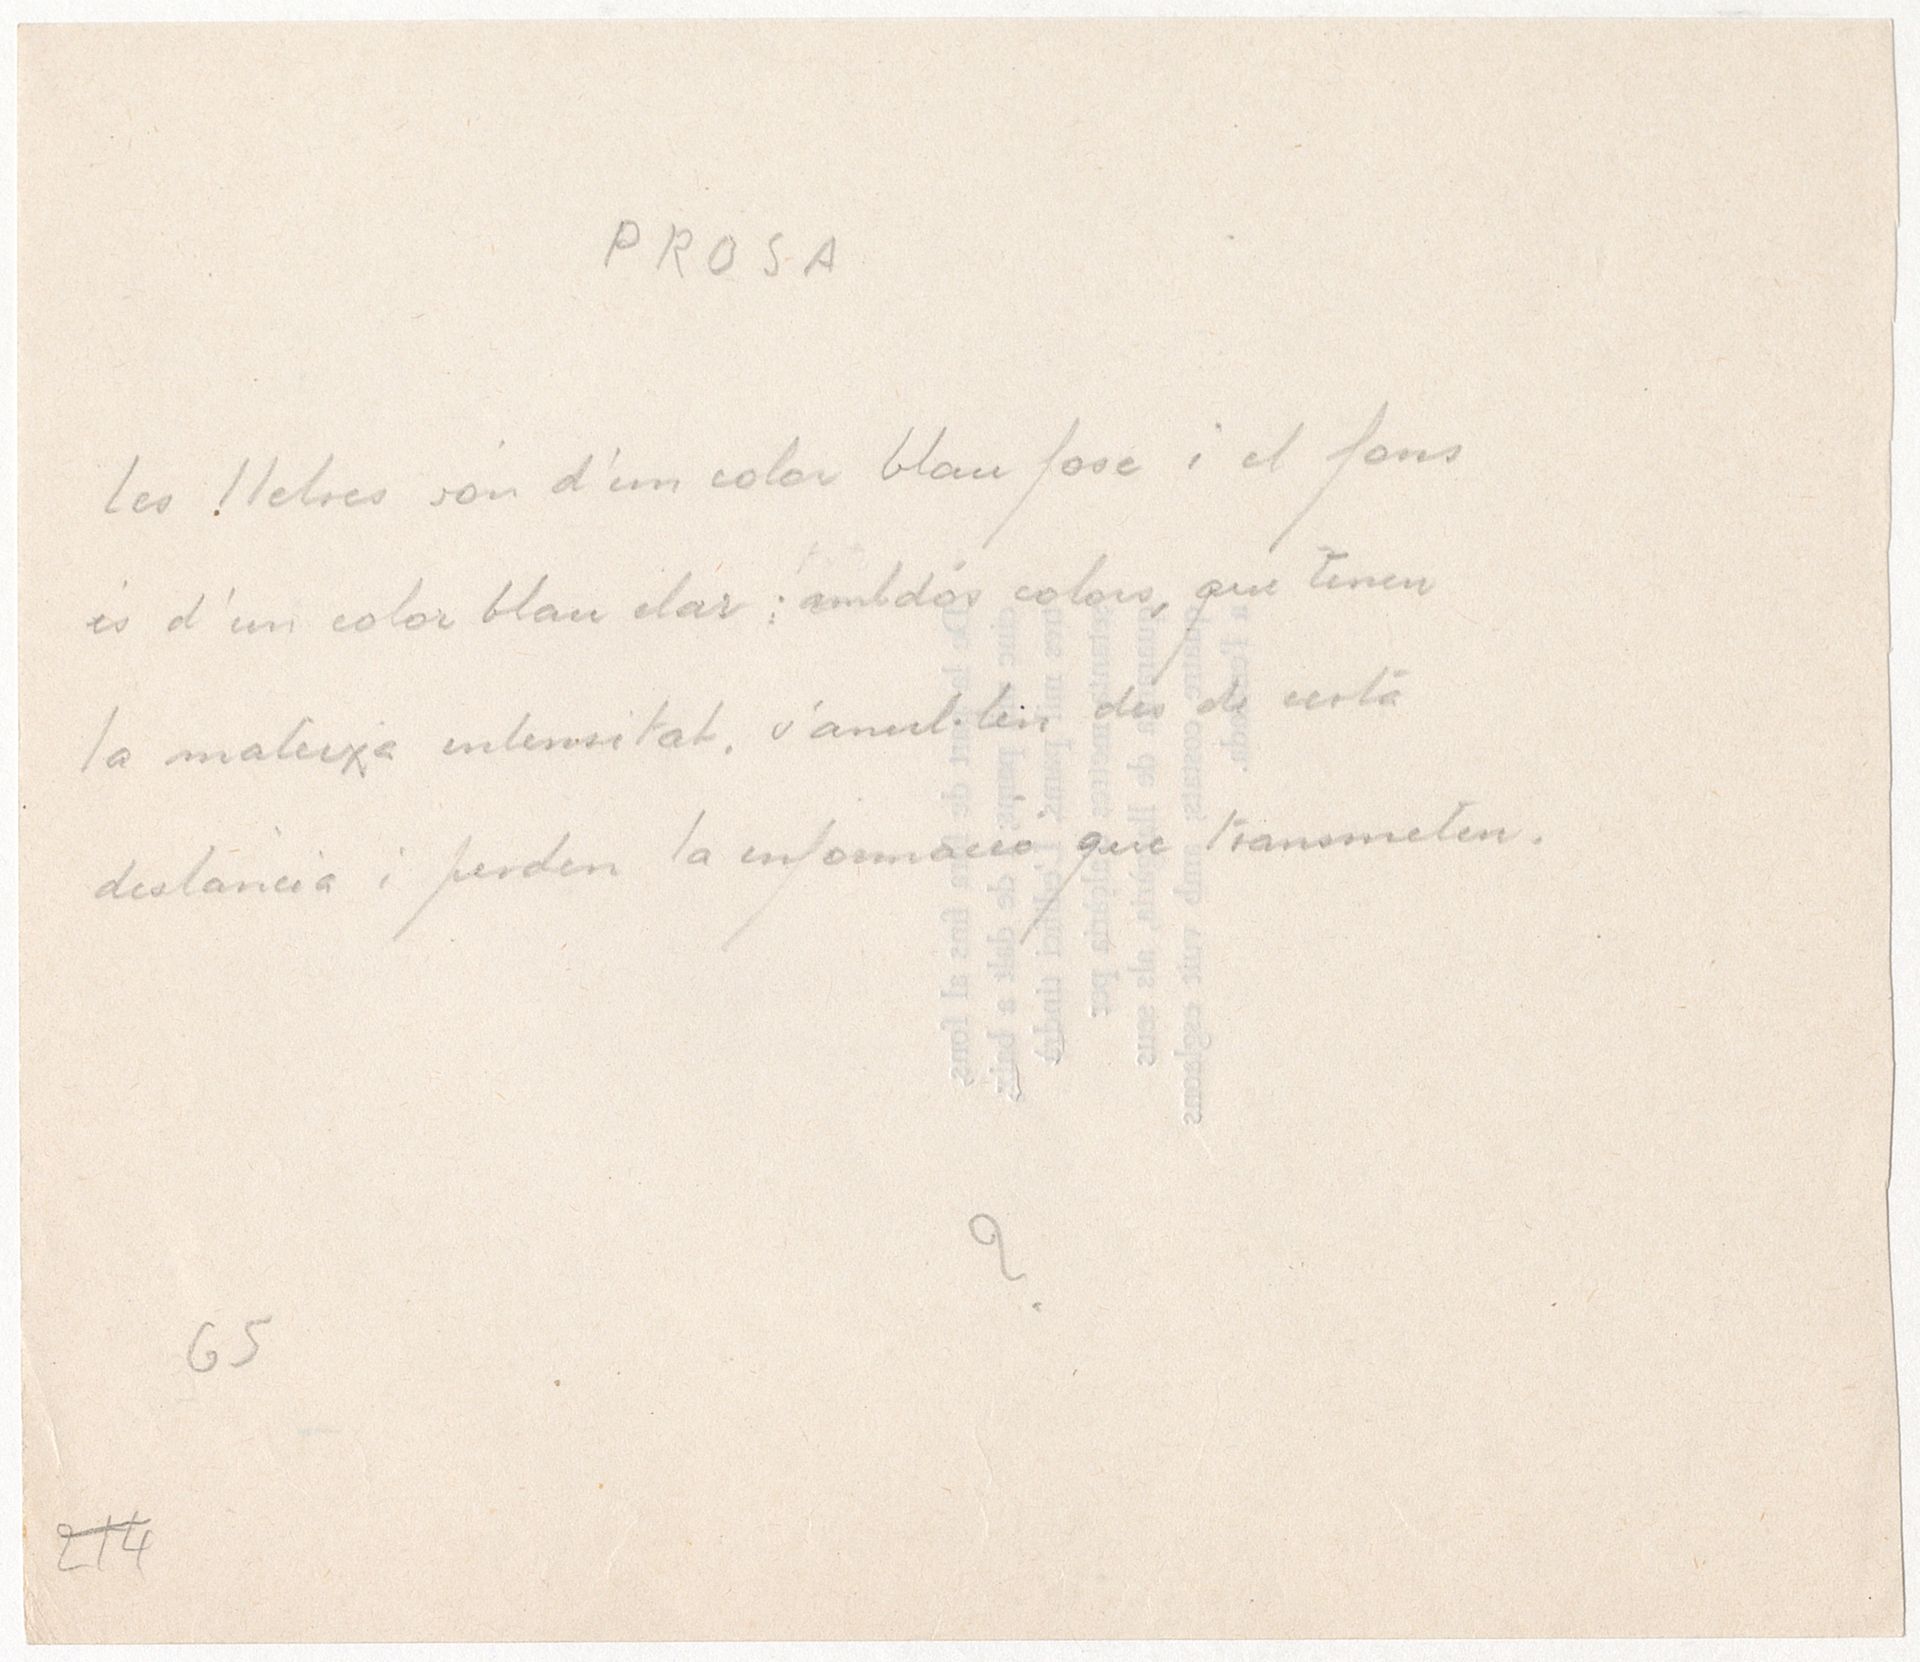 PROSA
Les lletres són d'un color blau fosc i el fons
és d'un color blau clar; ambdós colors, que tenen
la mateixa intensitat, s'anul·len des de certa
distància i perden la informació que transmeten.
65
214